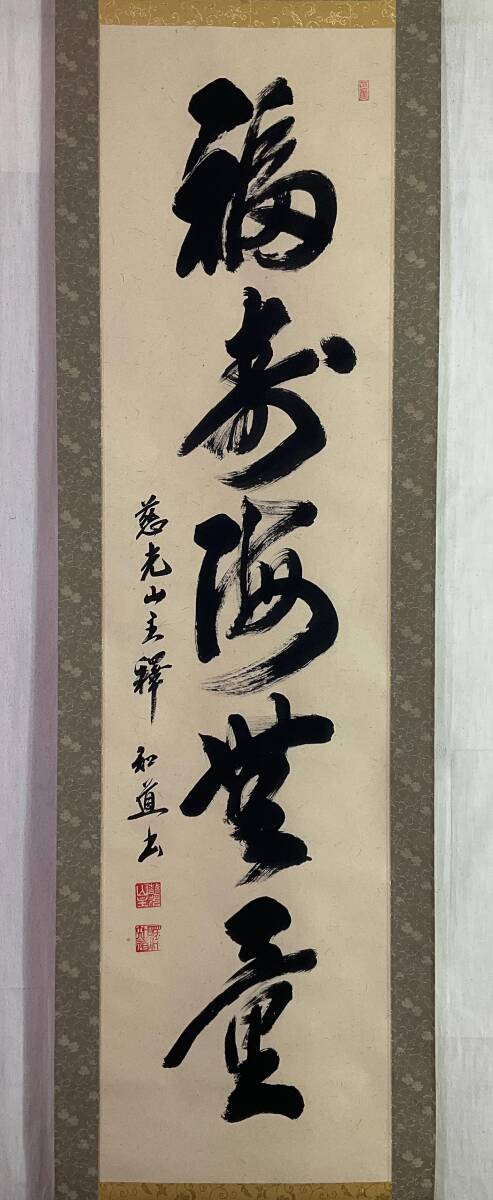 福寿海無量
慈光山主釋 和道書